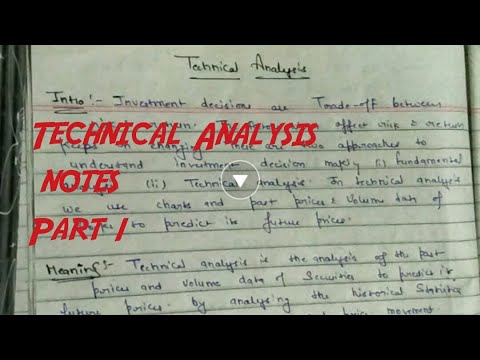 Technical Analysis
Intro :- Investment decisions are Trade-off between
effect risk & return
TECHNICAL ANALYSIS
changing two approaches to
understand investment decision making (i) fundamental
NOTES
(ii) Technical analysis. In technical analysis
we use charts and past prices & volume data of
PART 1
to predict its future prices.
Meaning :- Technical analysis is the analysis of the past
prices and volume data of Securities to predict it
future prices by analysing the historical Statistics
price movement.